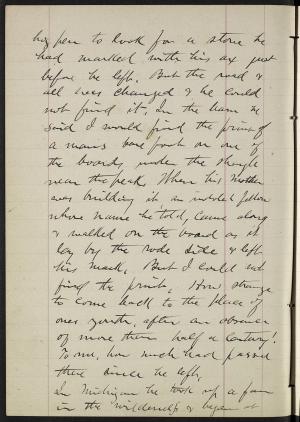 hospen to look for a stone he
had marked with his ax just
before he left. But the road &
all was changed & he could
not find it. In the barn he
said I would find the print of
a mans bare foot on one of
the boards, under the shingle
near the peak. When his Mother
was building it, an
whose name he told, came along
& walked on the board as it
lay by the rode side & left
his mark. But I could not
find the print. How strange
to come back to the place of
ones youth, after an absence
of more than half a century!
To me, how much had passed
there since he left.
In Michigan he took up a farm
in the wilderness & began